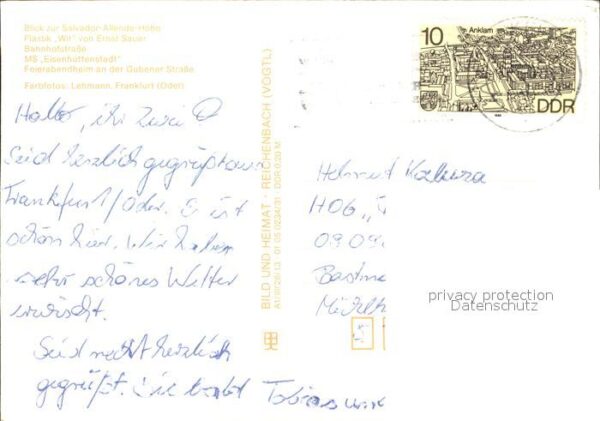 Blick zur Salvador-Allende-Höhe
Plastik „Wit" von Ernst Sauer
Bahnhofstraße
MS „Eisenhüttenstadt"
Feierabendheim an der Gubener Straße
Farbfotos: Lehmann, Frankfurt (Oder)
Hallo, ihr zwei
Seid herzlich gegrüßt aus
Frankfurt/Oder. Es ist
schön hier. Wir haben
sehr schönes Wetter
erwischt.
Seid recht herzlich
gegrüßt.
Tobias
BILD UND HEIMAT · REICHENBACH (VOGTL)
A1/
01 05 0234/31 DDR 0,20 M
10
Anklam
DDR
Helmut
HOG
privacy protection
Datenschutz